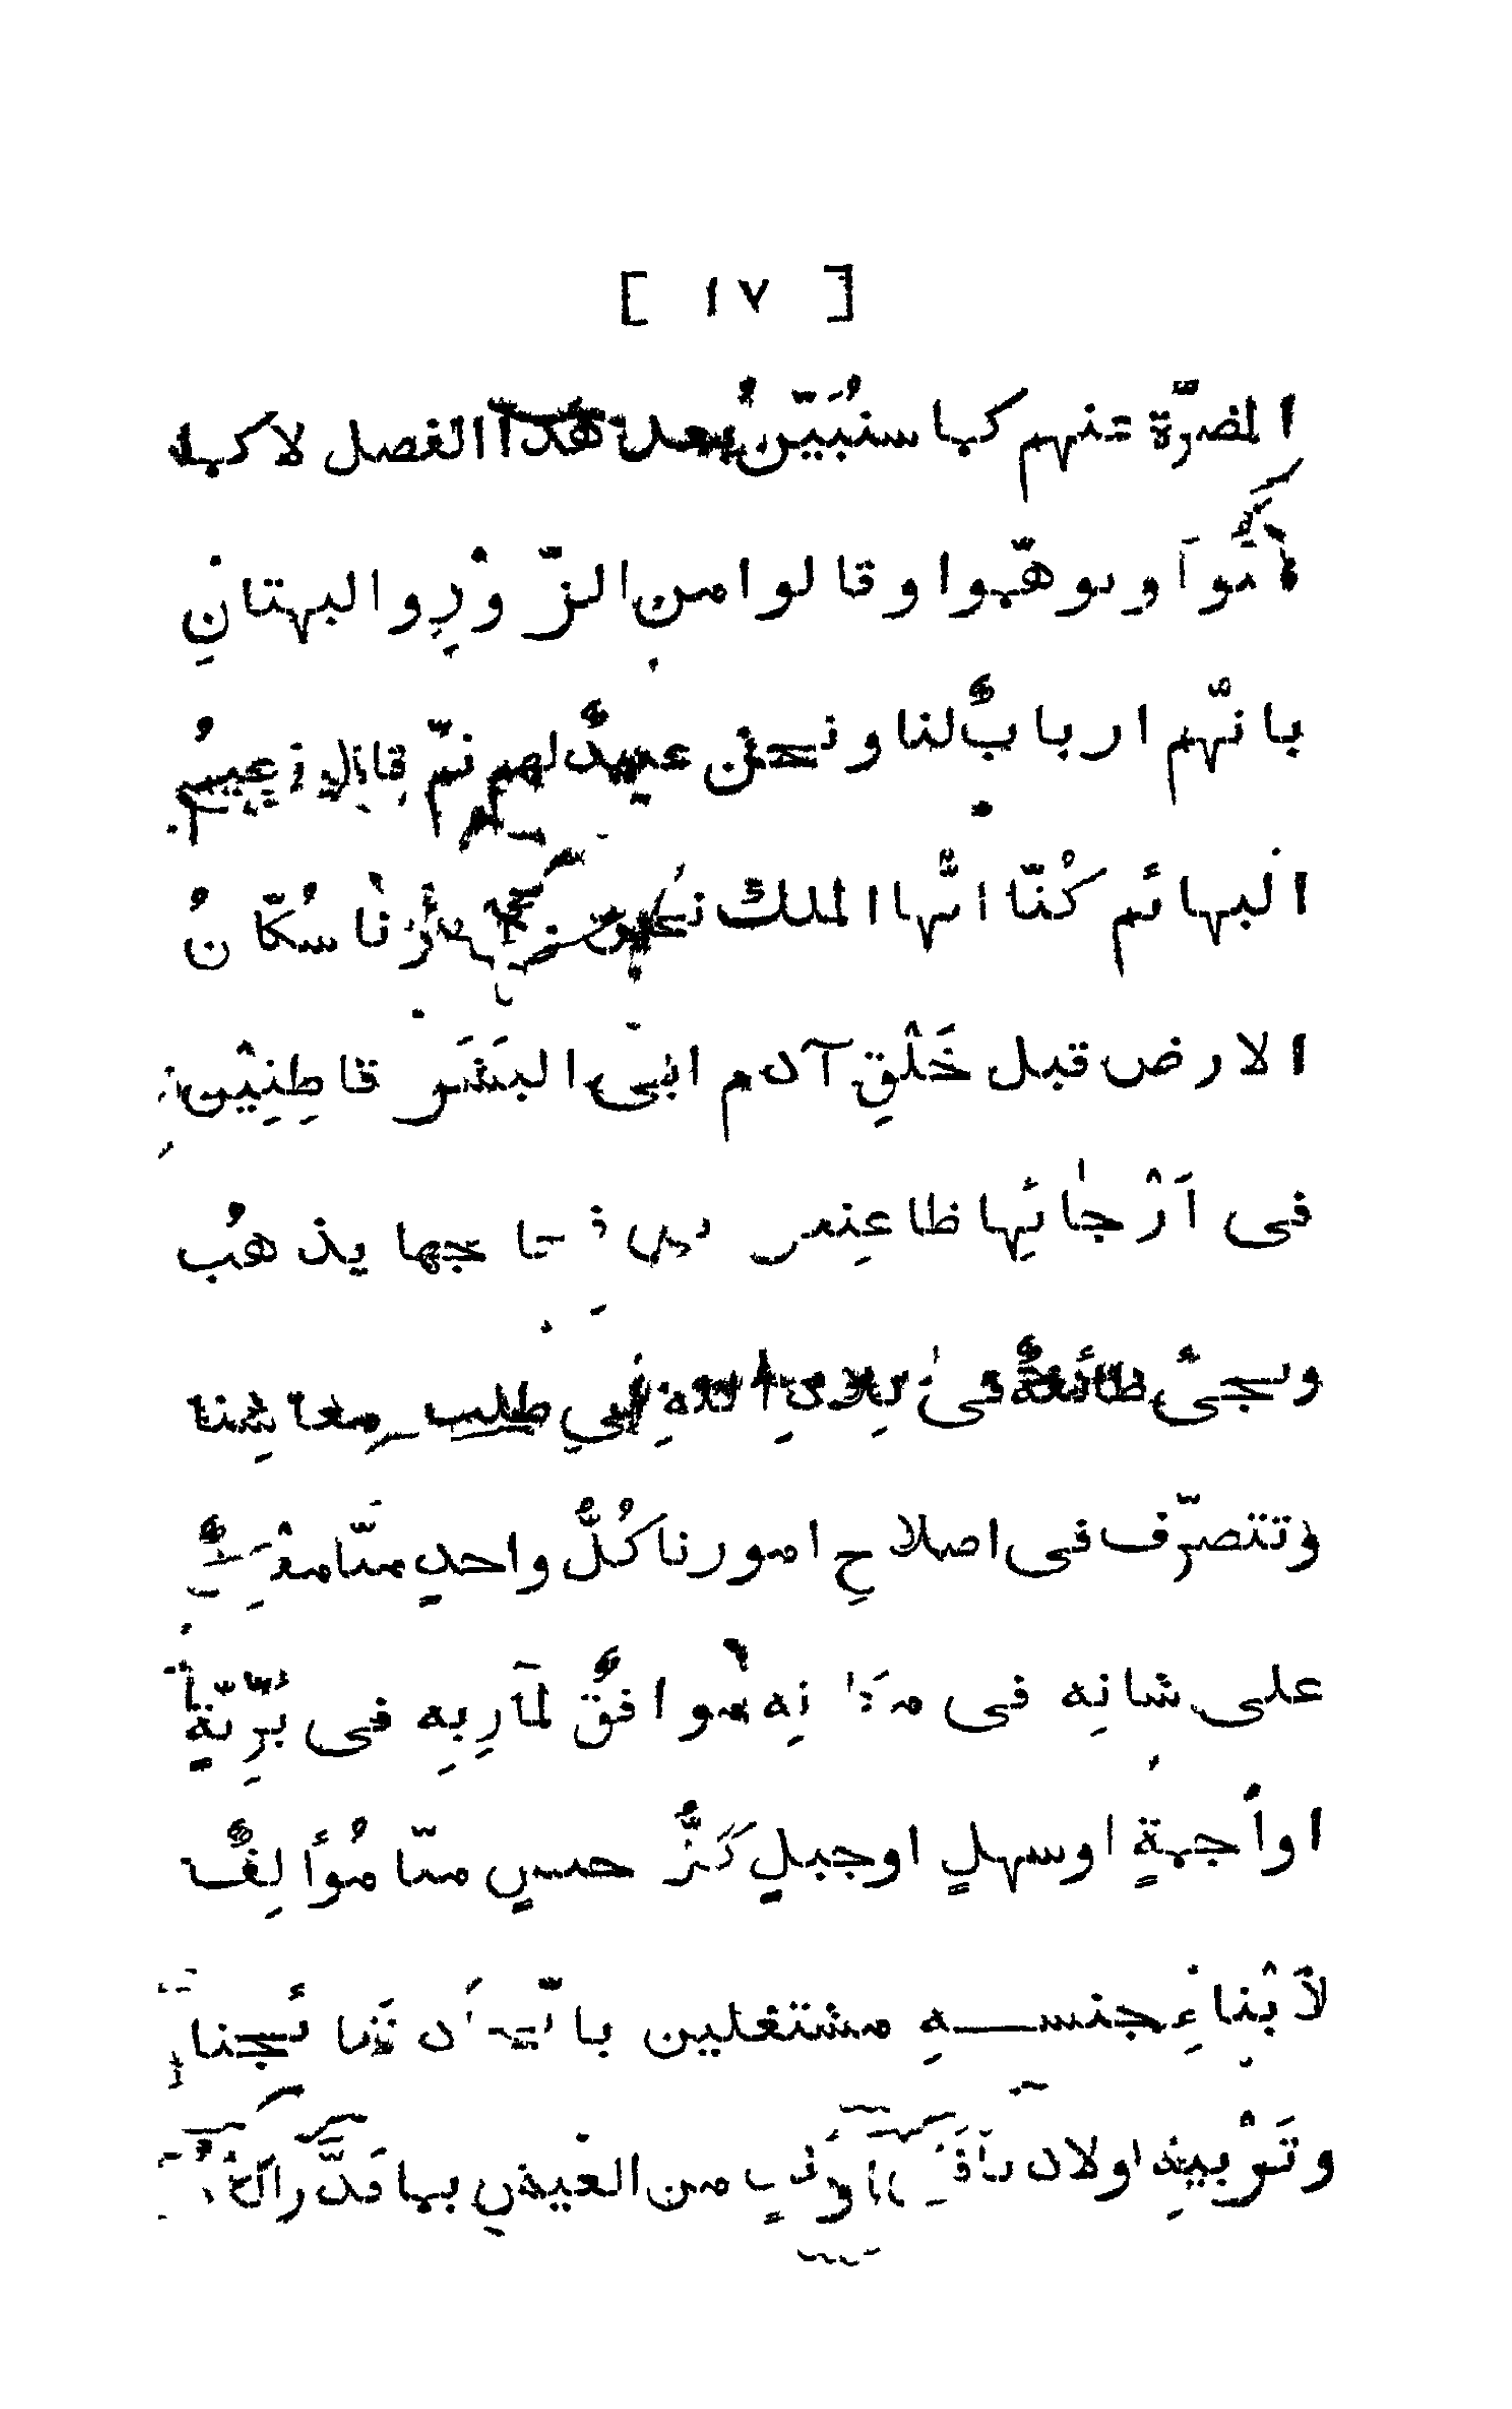 [ ١٧ ]
المضرّة عنهم كما سنُبَيّنُ بعد هذا الفصل لا كما
ظنّوا وتوهّموا وقالوا من الزّوْرِ والبهتانِ
بانّهم اربابٌ لنا ونحن عبيدٌ لهم ثمّ قال زعيمُ
البهائم كُنّا ايّها الملك نحن وآباؤنا سُكّانُ
الارض قبل خَلْقِ آدم ابى البَشَر قاطِنِيْن
فى اَرْجائِها ظاعنين فى فجاجها يذهبُ
ويجىُٔ طائفةٌ فى بلادِ اللهِ فى طلب معاشِنا
وتتصرّف فى اصلاحِ امورنا كُلُّ واحدٍ منّا مقبلٌ
على شانِه فى مكانِه موافقٌ لمآرِبِه فى بَرِّيّةٍ
او اَجمةٍ او سهلٍ او جبلٍ كلُّ جنسٍ منّا مُؤالِفٌ
لاَبْناءِ جنسهِ مشتغلين بــ نتائجنا
وتَرْبيةِ اولادنا من العيش بما قدَّر الله